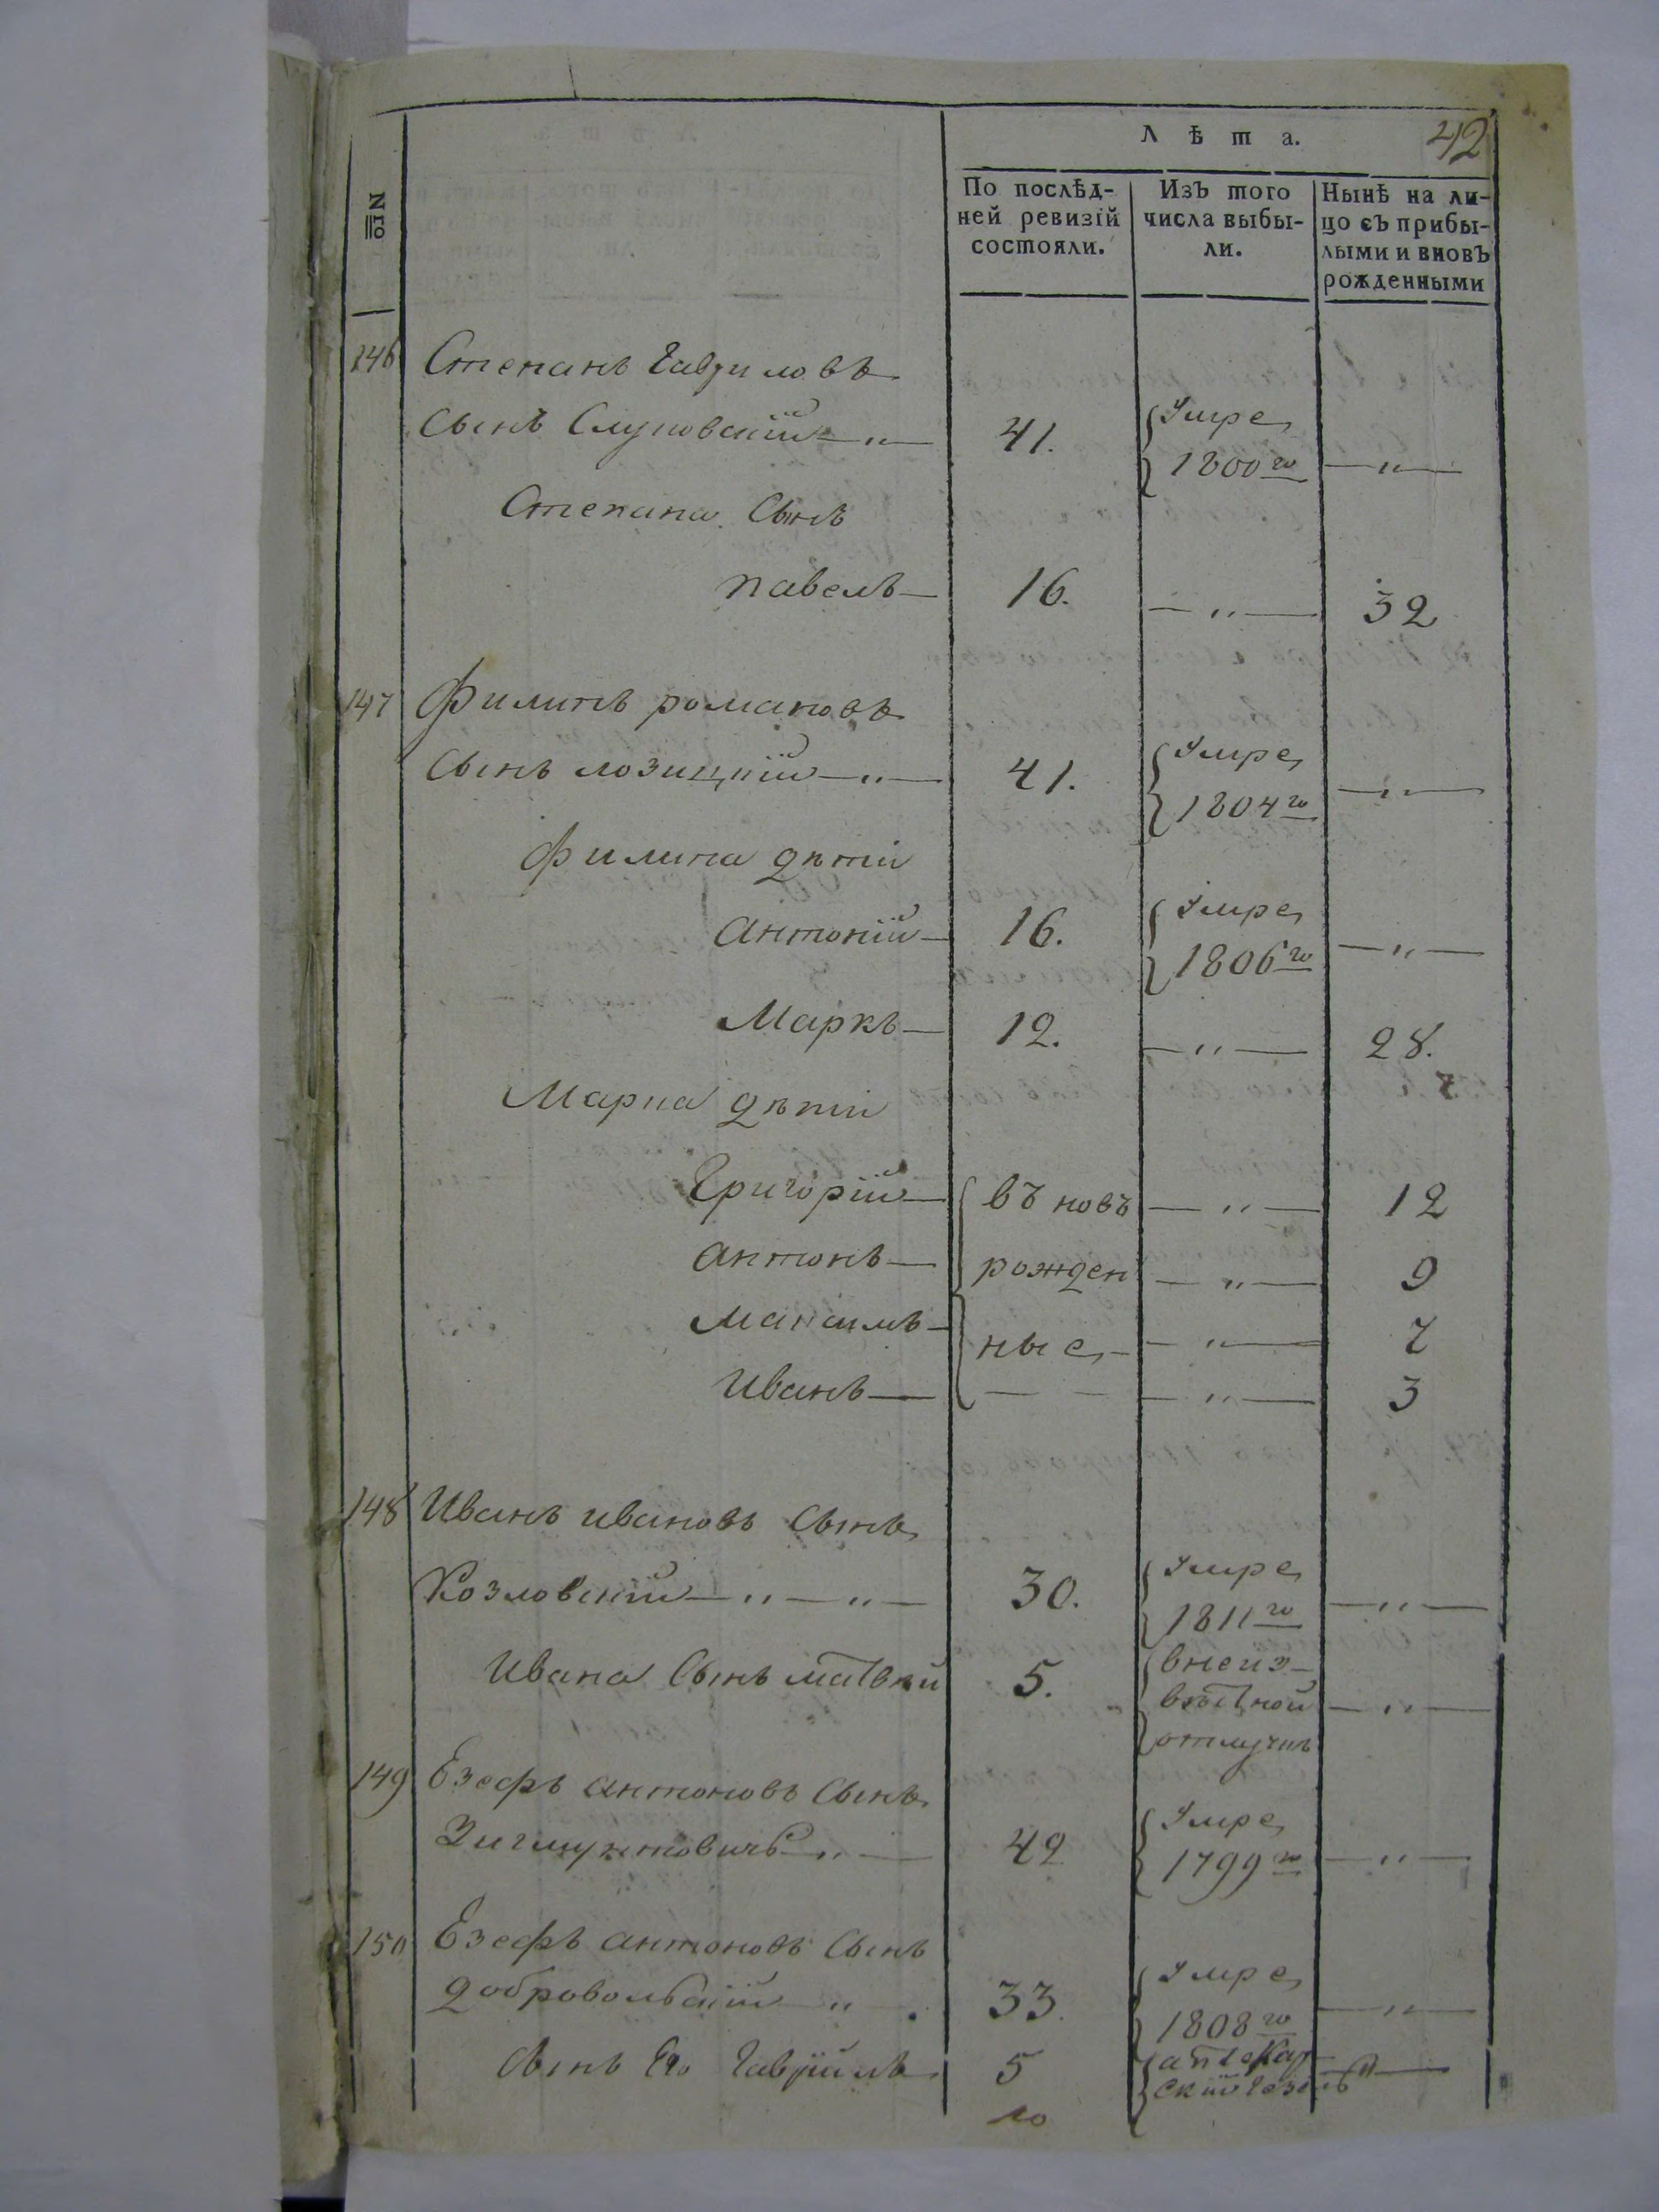 42
Лѣта.
№
По послѣд-
ней ревизїй
состояли.
Изъ того
числа выбы-
ли.
Нынѣ на ли-
цо съ прибы-
лыми и вновъ
рожденными
146 Степанъ Гавриловъ
Сынъ Слуновскїй —„— 41. Умре
1800го —„—
Степана Сынъ
павелъ — 16. —„— 32
147 Филипъ романовъ
Сынъ лозицкїй —„— 41. Умре
1804го —„—
Филипа дѣтїи
антонїй — 16. Умре
1806го —„—
Маркъ — 12. —„— 28.
Марка дѣтїи
Григорїй — въ новъ —„— 12
антонъ — рожден —„— 9
максимъ — ные —„— 7
Иванъ — — — —„— 3
148 Иванъ ивановъ Сынъ
Козловскїй —„—„— 30. Умре
1811го —„—
Ивана Сынъ матвѣй 5. внеиз-
вѣстной —„—
отлучкѣ
149 Езефъ антоновъ Сынъ
Зигмунтовичъ —„— 49 Умре
1799го —„—
150 Езефъ антоновъ Сынъ
добровольскїй „ 33. Умре
1808го —„—
Сынъ Его Гаврїилъ 5 аптекар
скїй гезель —„—